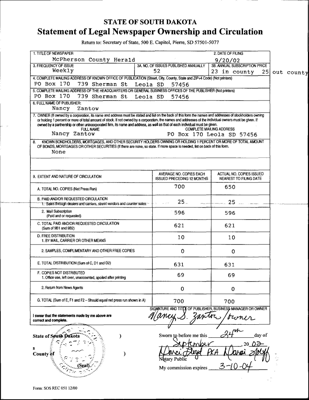 STATE OF SOUTH DAKOTA
Statement of Legal Newspaper Ownership and Circulation
Return to: Secretary of State, 500 E. Capitol, Pierre, SD 57501-5077
1. TITLE OF NEWSPAPER
McPherson County Herald
2. DATE OF FILING
9/20/02
3. FREQUENCY OF ISSUE
Weekly
3A. NO. OF ISSUES PUBLISHED ANNUALLY
52
3B. ANNUAL SUBSCRIPTION PRICE
23 in county 25 out county
4. COMPLETE MAILING ADDRESS OF KNOWN OFFICE OF PUBLICATION (Street, City, County, State and ZIP+4 Code) (Not printer)
PO Box 170 739 Sherman St Leola SD 57456
5. COMPLETE MAILING ADDRESS OF THE HEADQUARTERS OR GENERAL BUSINESS OFFICES OF THE PUBLISHER (Not printer)
PO Box 170 739 Sherman St Leola SD 57456
6. FULL NAME OF PUBLISHER:
Nancy Zantow
7. OWNER (If owned by a corporation, its name and address must be stated and list on the back of this form the names and addresses of stockholders owning
or holding 1 percent or more of total amount of stock. If not owned by a corporation, the names and addresses of the individual owners must be given. If
owned by a partnership or other unincorporated firm, its name and address, as well as that of each individual must be given.)
FULL NAME
COMPLETE MAILING ADDRESS
Nancy Zantow
PO Box 170 Leola SD 57456
8. KNOWN BONDHOLDERS, MORTGAGES, AND OTHER SECURITY HOLDERS OWNING OR HOLDING 1 PERCENT OR MORE OF TOTAL AMOUNT
OF BONDS, MORTGAGES OR OTHER SECURITIES (If there are none, so state. If more space is needed, list on back of this form.
None
9. EXTENT AND NATURE OF CIRCULATION
AVERAGE NO. COPIES EACH ISSUED PRECEDING 12 MONTHS
ACTUAL NO. COPIES ISSUED NEAREST TO FILING DATE
A. TOTAL NO. COPIES (Net Press Run)
700 650
B. PAID AND/OR REQUESTED CIRCULATION
1. Sales through dealers and carriers, street vendors and counter sales
25 25
2. Mail Subscription
(Paid and or requested)
596 596
C. TOTAL PAID AND/OR REQUESTED CIRCULATION
(Sum of 9B1 and 9B2)
621 621
D. FREE DISTRIBUTION
1. BY MAIL, CARRIER OR OTHER MEANS
10 10
2. SAMPLES, COMPLIMENTARY AND OTHER FREE COPIES
0 0
E. TOTAL DISTRIBUTION (Sum of C, D1 and D2)
631 631
F. COPIES NOT DISTRIBUTED
1. Office use, left over, unaccounted, spoiled after printing
69 69
2. Return from News Agents
0 0
G. TOTAL (Sum of E, F1 and F2 - Should equal net press run shown in A)
700 700
I swear that the statements made by me above are
correct and complete.
SIGNATURE AND TITLE OF PUBLISHER, BUSINESS MANAGER OR OWNER
Nancy S. Zantow / owner
State of South Dakota )
County of )
(Seal)
Sworn to before me this 24th day of
September 2002
Notary Public
My commission expires 3-10-04
Form: SOS REC 051 12/00